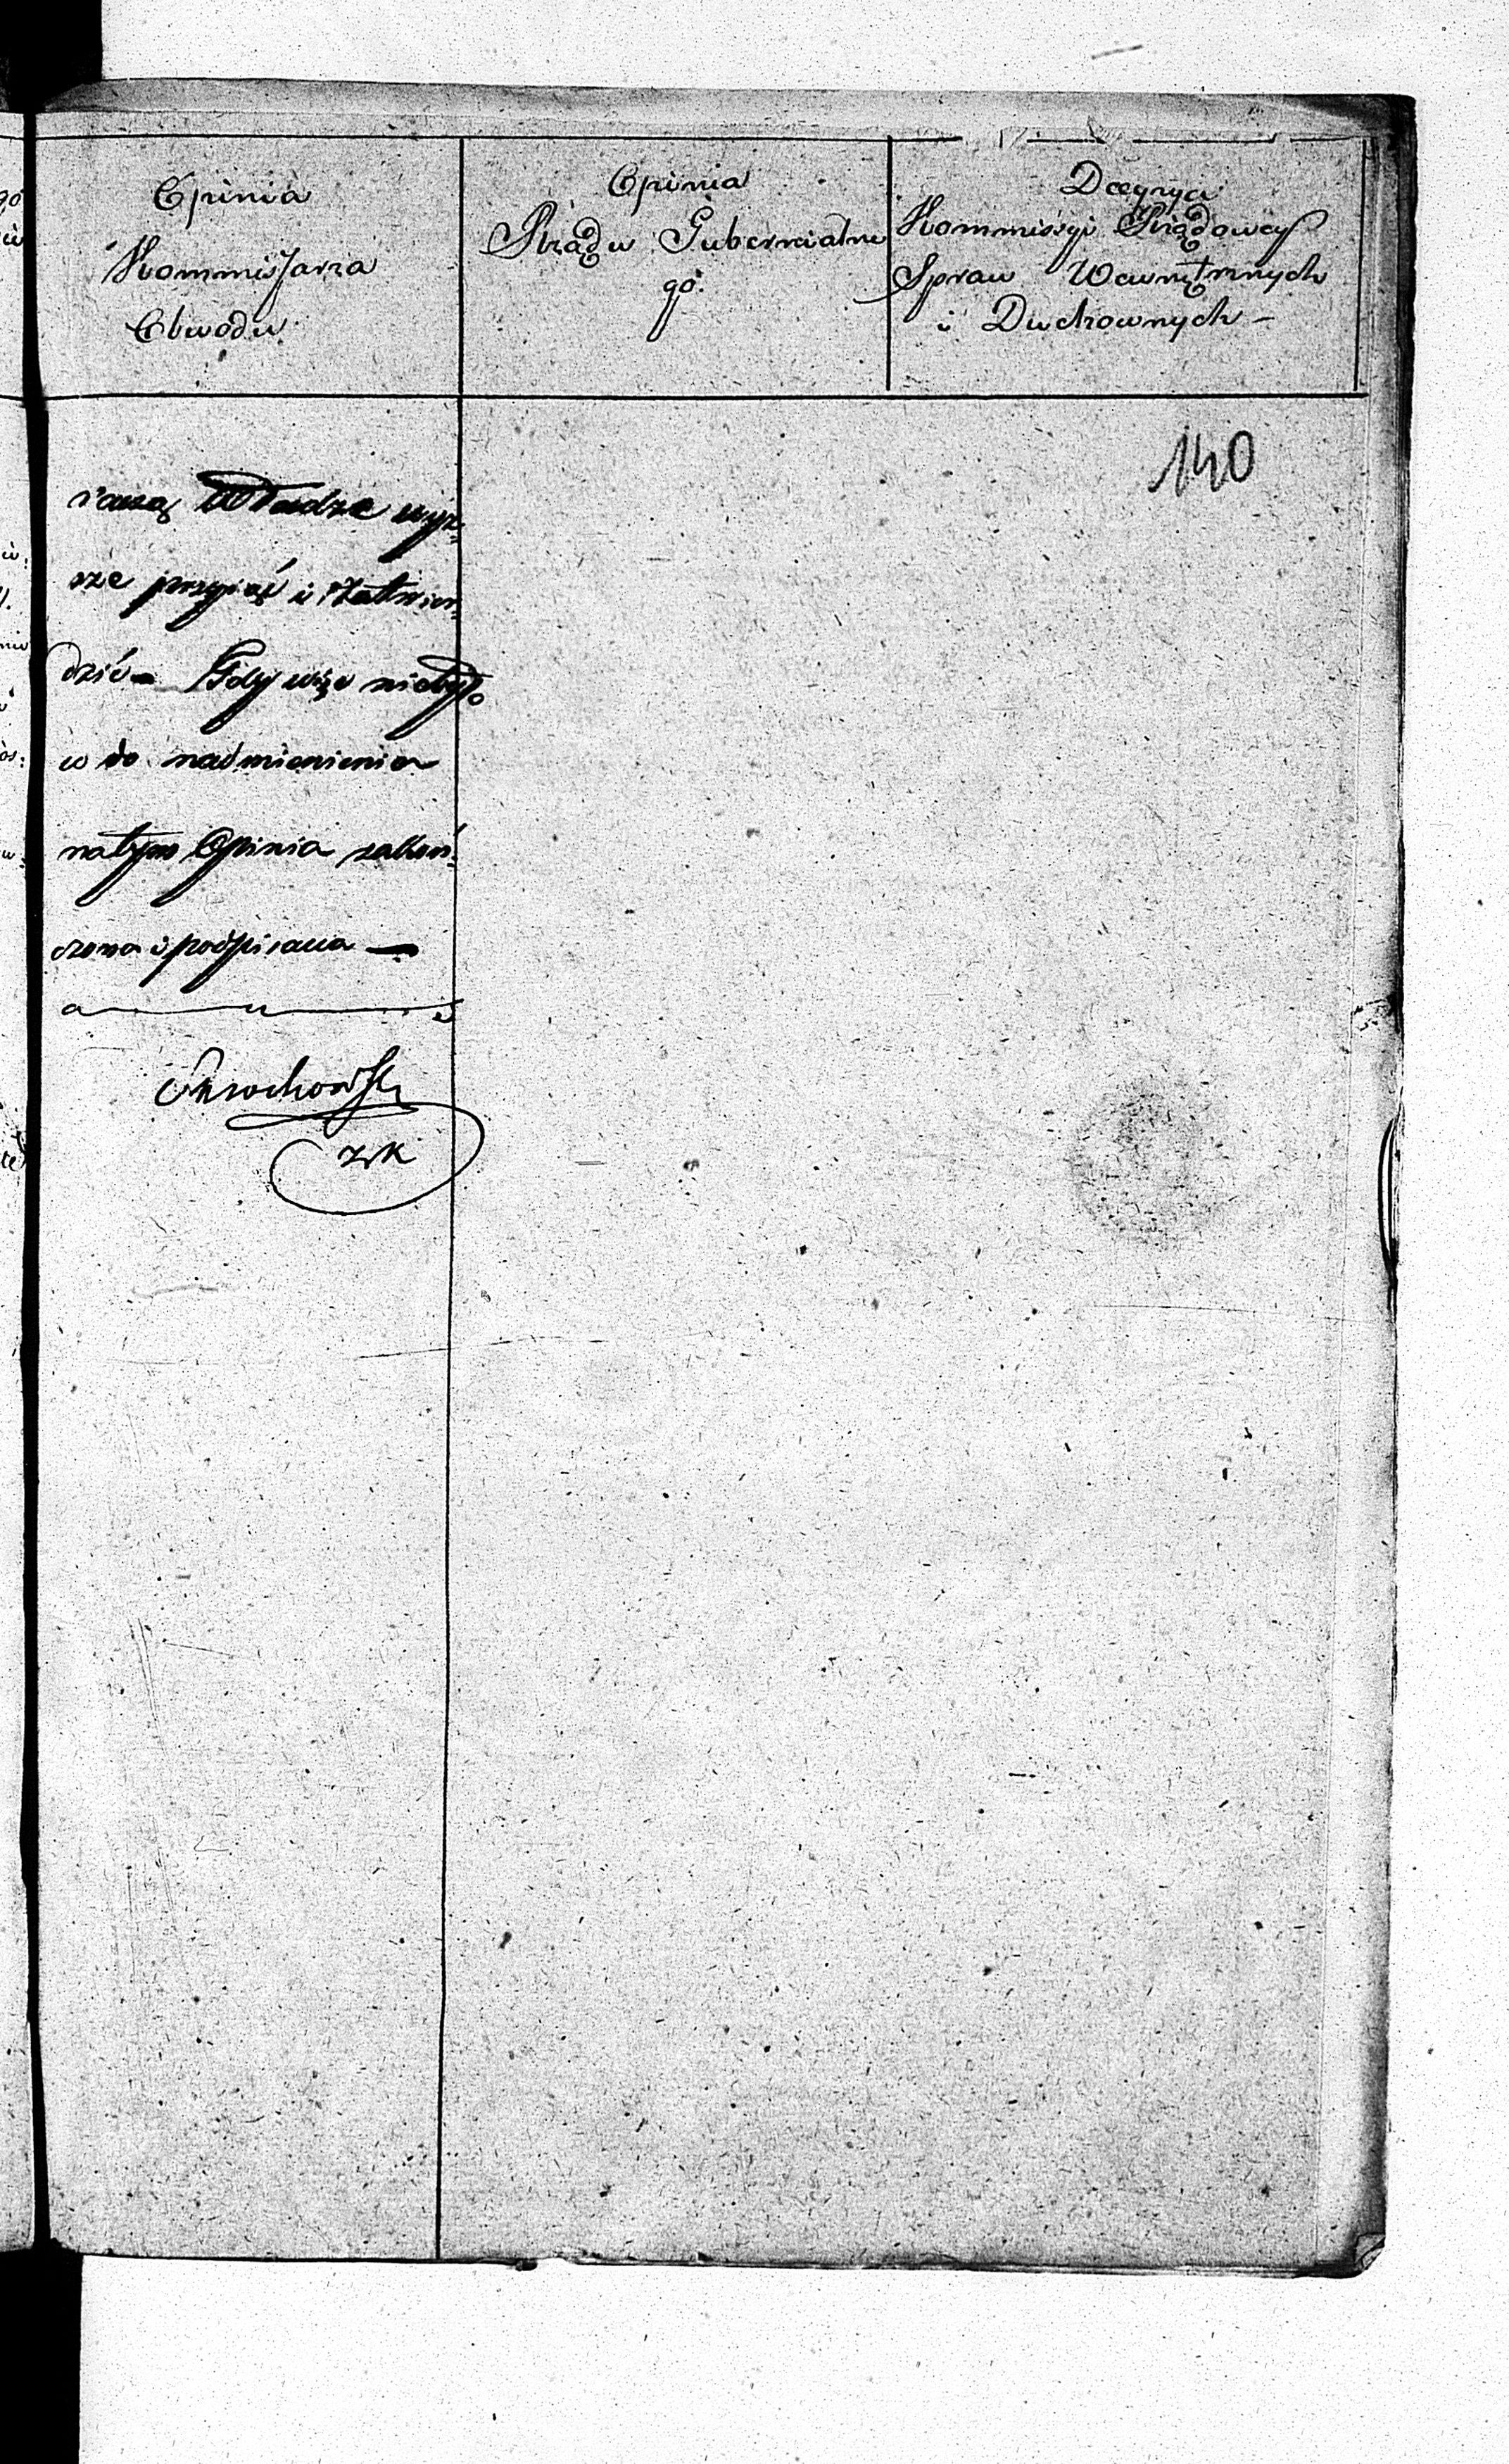 Opinia
Kommissarza
Obwodu
Opinia
Rządu Gubernialne
go.
Decyzya
Kommissyi Rządowey
Spraw Wewnętrznych
i Duchownych —
140
raczą Władze wyż=
sze przyiąć i zatwier=
dzić — Gdy więc niebyło
co do nadmienienia
natym Opinia zakoń=
czona i podpisana —
ZK